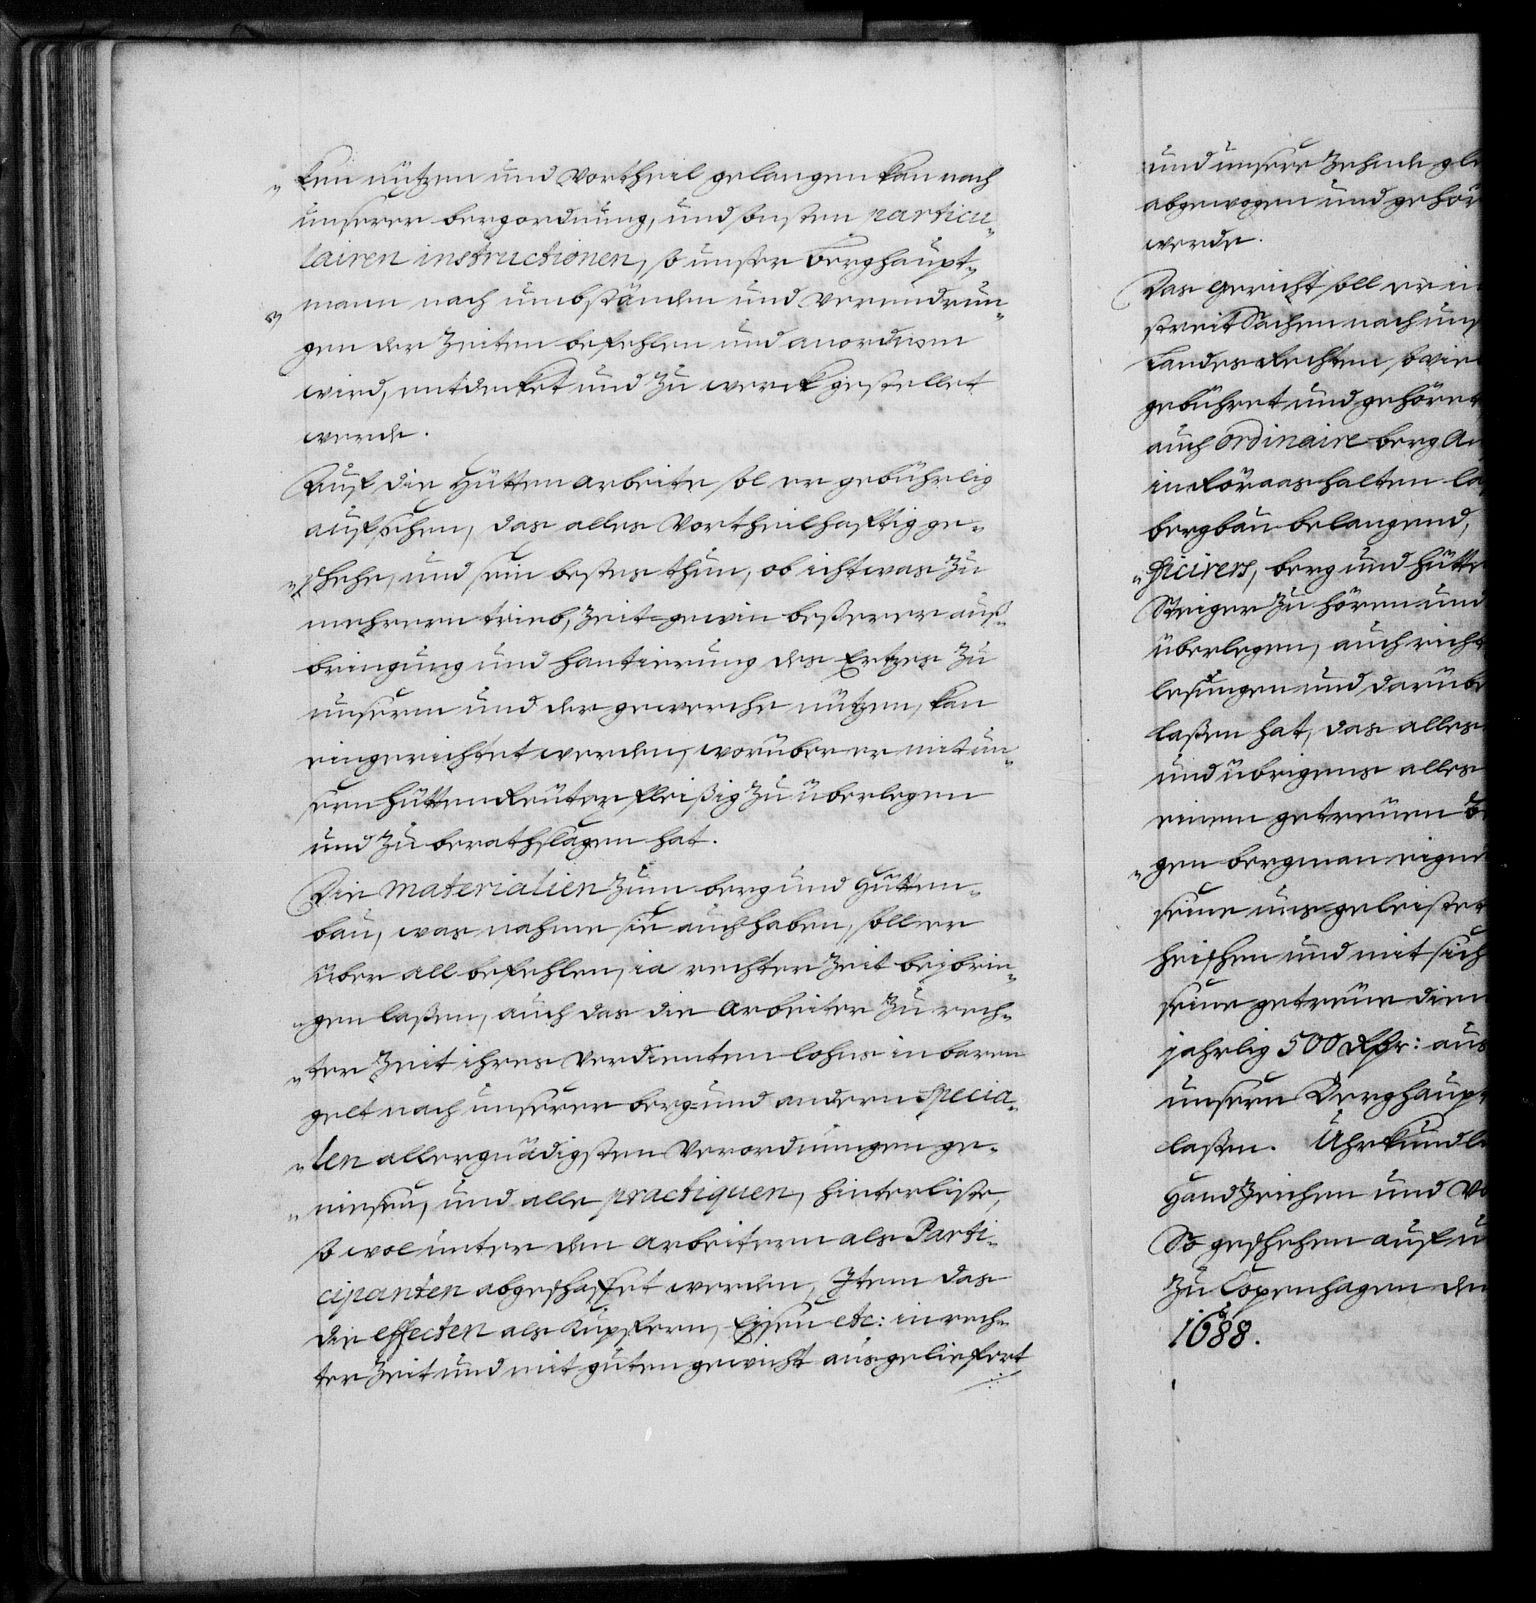 „ken nützen und Vortheil gelangen kan nach
unserer bergordnung, und sonsten particu„
lairen instructionen, so unser Berghaupt„
mann nach umbständen und Verendrun„
gen der Zeiten befehlen und anordnen
wird, entdecket und Zu werck gestellet
werde.
Auf die Hütten arbeite sol er gebührlig
aufsehen, das alles Vortheilhaftig ge„
„schehe, und sein bestes thun, ob ichtwas Zu
mehrern trieb, Zeit-gewin beßerer auß„
bringung und hantierung des Ertzes Zu
unserm und der gewercke nützen, kan
eingerichtet werden, worüber er mit un„
sern Hütten Reuter fleißig Zu überlegen
und Zu berathslagen hat.
Die Materialien Zum berg und Hütten„
bau, was nahme sie auch haben, soll er
über all befehlen, in rechter Zeit beybrin„
„gen laßen, auch das die Arbeiter Zu rech„
„ter Zeit ihres Verdienten lohns in baren
gelt nach unserer berg und andern specia„
„len allergnädigsten Verordnungen ge„
„niesen, und alle practiquen, hinterliste,
so wol unter den arbeitern als Parti„
cipanten abgeschaffet werden, Item das
die effecten als Kupffern, Eysen etc: in rech„
ter Zeit und mit guten gewicht ausgeliefert
und unsere Zehende
abgewogen und
werde.
Das Gericht soll er
streit Sachen nach
Landes Rechten, so
gebühret und gehöret
auch ordinaire berg
in Röraas halten
bergbau belangend,
„ficirers, berg und
Steiger Zu hören und
überlegen, auch
lesungen und
laßen hat, das alles
und übrigens alles
einem getreuen
„gen bergman
seine uns
heischen und mit sich
seine getreue
jahrlig 500 Rdr: aus
unsern
laßen.
Handzeichen und
So geschehen auf
Zu Copenhagen den
1688.